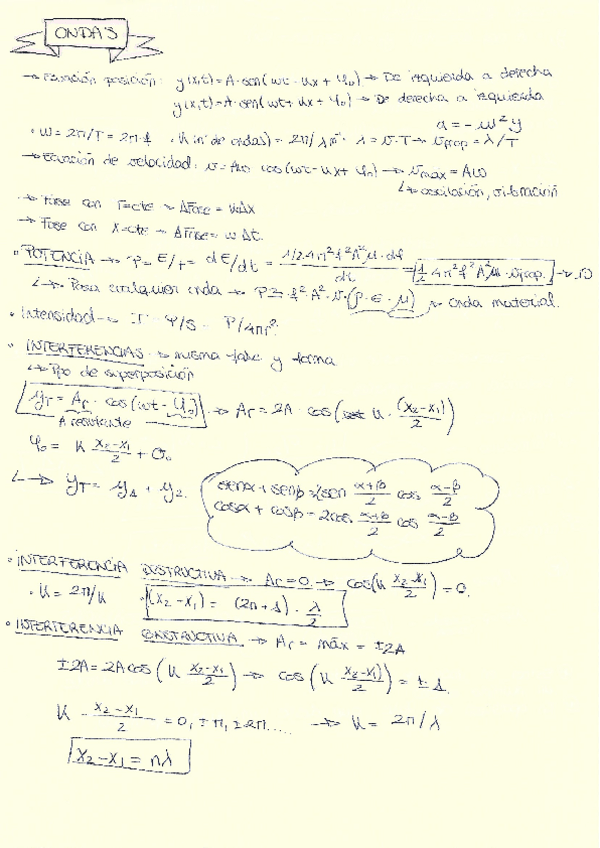 ONDA'S
→ Ecuación posición: y(x,t)=A·sen(wt - kx + φ₀) → De izquierda a derecha
y(x,t)=A·sen(wt + kx + φ₀) → De derecha a izquierda
a = -w²y
· w = 2π/T = 2π·f · k (nº de ondas) = 2π/λ m⁻¹ · λ = v·T → vprop = λ/T
→ Ecuación de velocidad: v = Aw cos(wt - kx + φ₀) → vmax = Aw
↳ oscilación, vibración
→ Fase con T=cte → ΔFase = kΔx
→ Fase con x=cte → ΔFase = wΔt.
· POTENCIA → P = E/t = dE/dt = 1/2·4π²f²A²μ·dx / dt = 1/2 4π²f²A²μ·vprop.
↳ Para cualquier onda → P = f²·A²·v·(ρ·E·μ) → onda material.
· Intensidad → I = P/S = P/4πr².
· INTERFERENCIAS → misma fase y forma
↳ Ppo de superposición
yT = Ar · cos(wt - φ₀) → Ar = 2A · cos(k · (x₂-x₁)/2)
A resultante
φ₀ = k (x₂-x₁)/2 + φ₀
↳ → yT = y₁ + y₂.
senα + senβ = 2sen (α+β)/2 cos (α-β)/2
cosα + cosβ = 2cos (α+β)/2 cos (α-β)/2
· INTERFERENCIA DESTRUCTIVA → Ar = 0. → cos(k (x₂-x₁)/2) = 0.
· k = 2π/k · (x₂-x₁) = (2n+1) · λ/2
· INTERFERENCIA CONSTRUCTIVA → Ar = máx = ±2A
±2A = 2A cos(k (x₂-x₁)/2) → cos(k (x₂-x₁)/2) = ±1.
k · (x₂-x₁)/2 = 0, ±π, ±2π..... → k = 2π/λ
x₂-x₁ = nλ